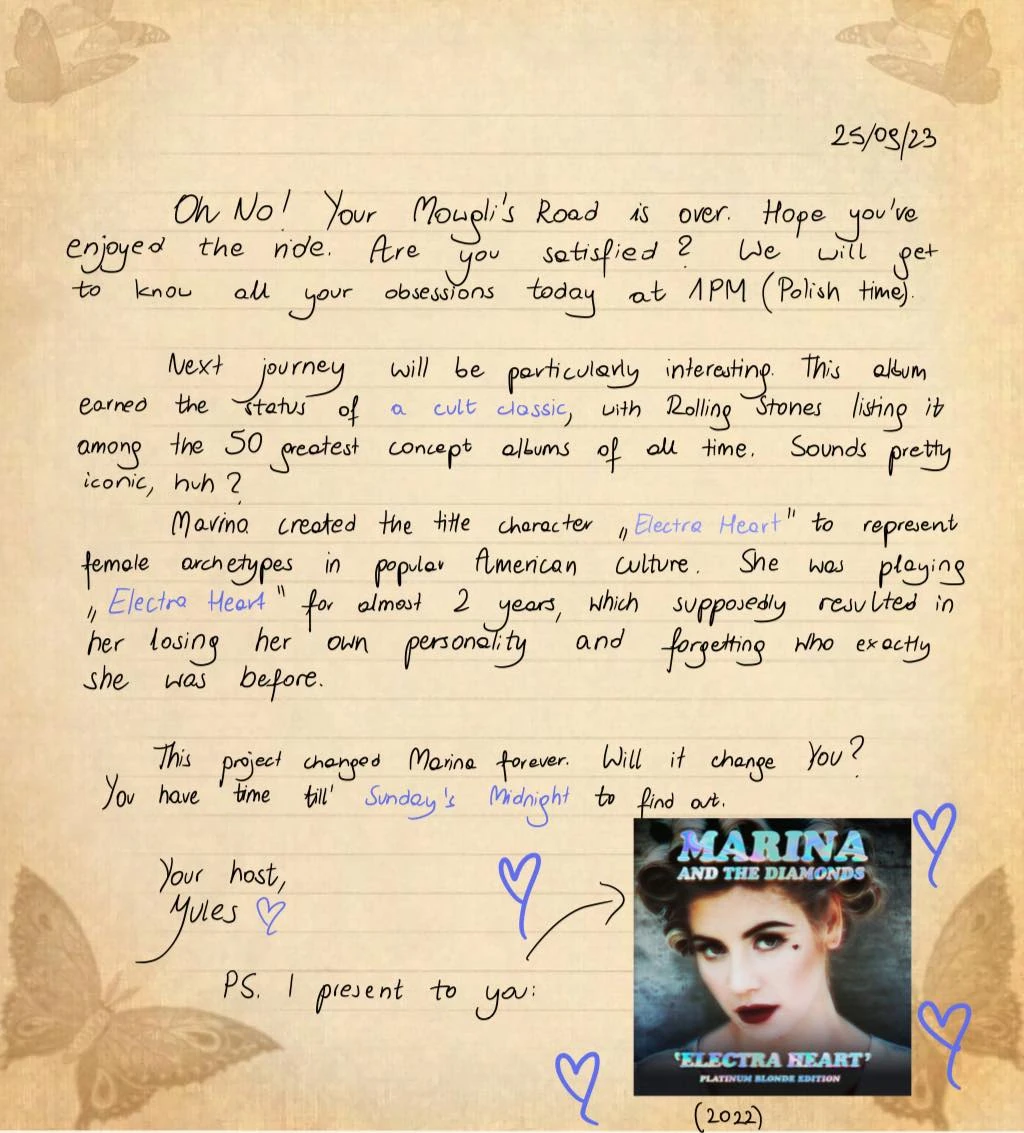 25/09/23
Oh No! Your Mowgli's Road is over. Hope you've
enjoyed the ride. Are you satisfied? We will get
to know all your obsessions today at 1PM (Polish time).
Next journey will be particularly interesting. This album
earned the status of a cult classic, with Rolling Stones listing it
among the 50 greatest concept albums of all time. Sounds pretty
iconic, huh?
Marina created the title character „Electra Heart" to represent
female archetypes in popular American culture. She was playing
„Electra Heart" for almost 2 years, which supposedly resulted in
her losing her own personality and forgetting who exactly
she was before.
This project changed Marina forever. Will it change You?
You have time till' Sunday's Midnight to find out.
Your host,
Yules
PS. I present to you:
MARINA
AND THE DIAMONDS
'ELECTRA HEART'
PLATINUM BLONDE EDITION
(2022)